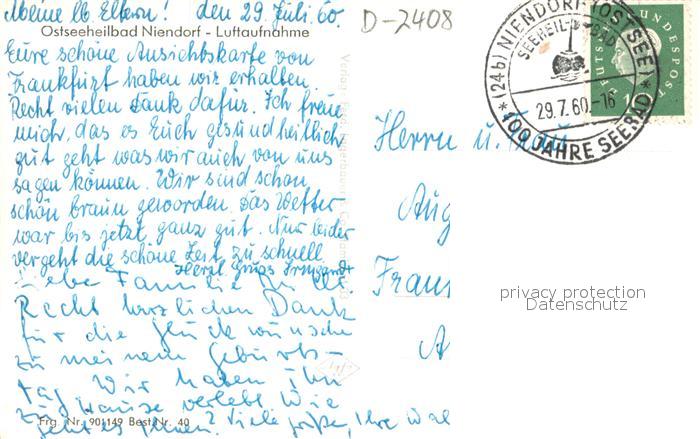 Meine lb. Eltern! den 29. Juli 60.
D-2408
Ostseeheilbad Niendorf - Luftaufnahme
Eure schöne Ansichtskarte von
Frankfurt haben wir erhalten.
Recht vielen Dank dafür. Ich freue
mich, das es Euch gesundheitlich
gut geht was wir auch von uns
sagen können. Wir sind schon
schön braun geworden. Das Wetter
war bis jetzt ganz gut. Nur leider
vergeht die schöne Zeit zu schnell
Herzl. Gruss Irmgard
Liebe Familie
Recht herzlichen Dank
für die Glückwünsche
zu meinem Geburts-
tag Wir haben ihn
zu Hause verlebt Wie
geht es Ihnen? Viele Grüße, Ihre
Frg. Nr. 901149 Best. Nr. 40
Herrn u. Frau
Aug
Frank
A
(24b) NIENDORF (OSTSEE)
29.7.60-16
100 JAHRE SEEBAD
DEUTSCHE BUNDESPOST
10
privacy protection
Datenschutz